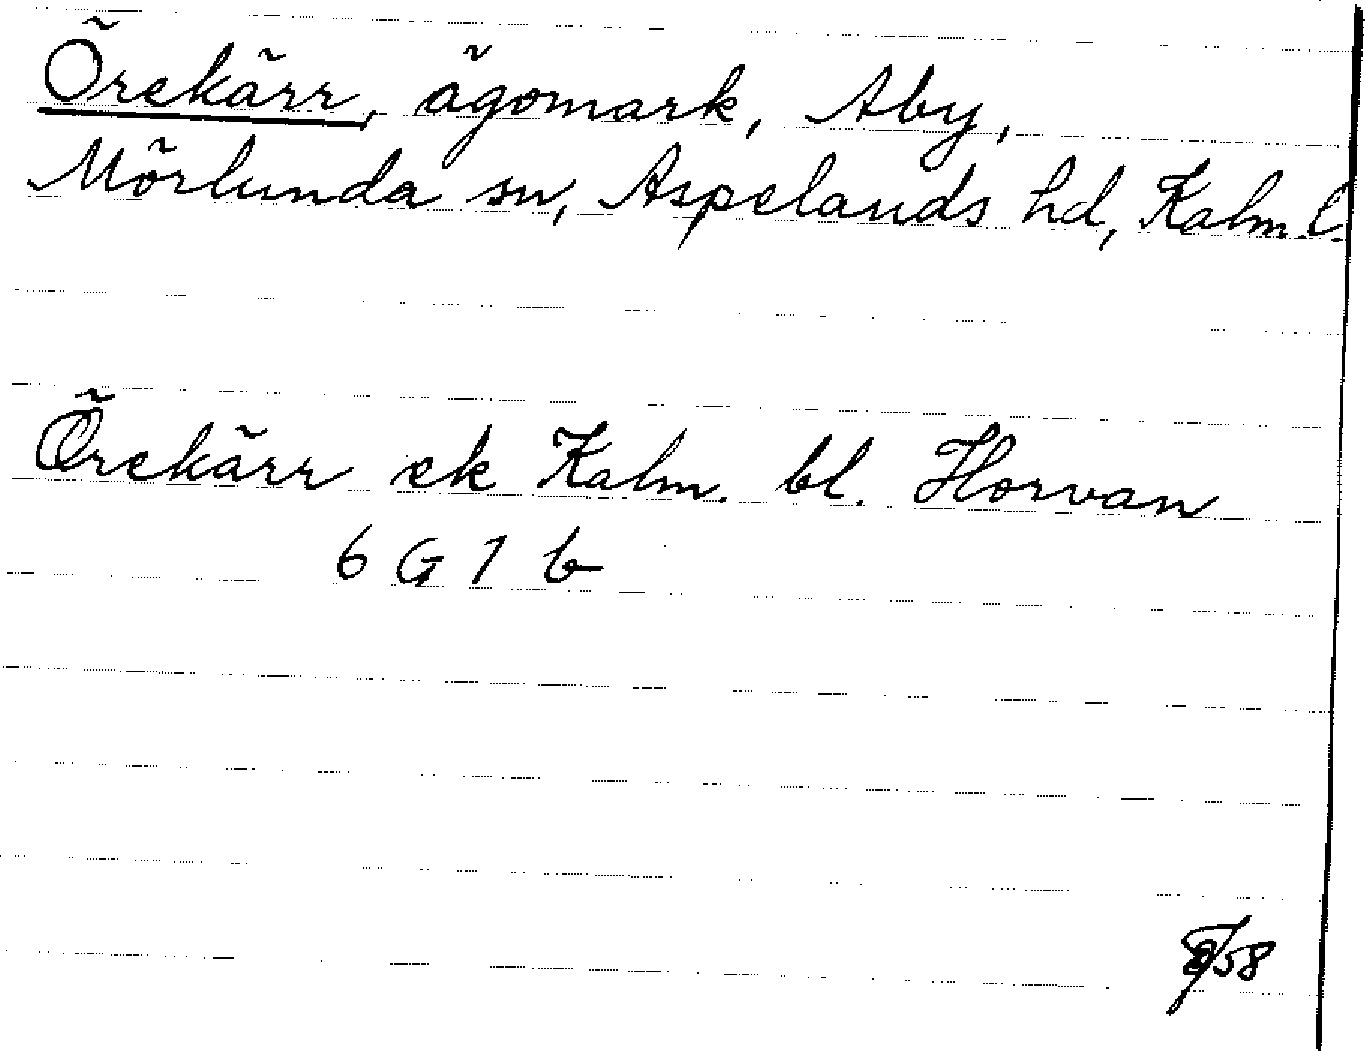 Örekärr, ägomark, Åby,
Mörlunda sn, Aspelands hd, Kalm. l.
Örekärr ek Kalm. bl. Horvan
6 G 1 b
/58